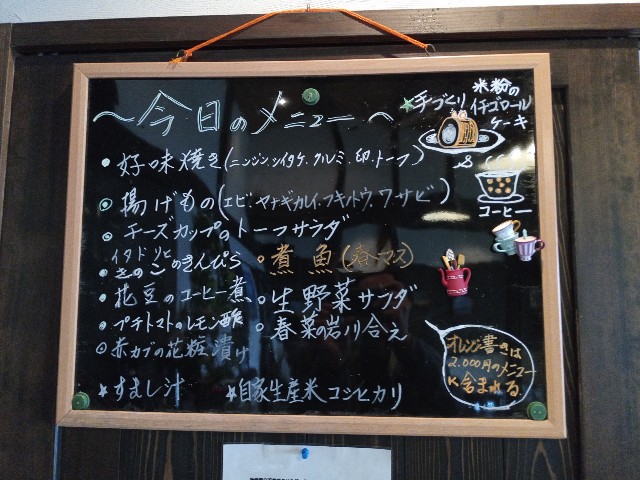 ～今日のメニュー～
★手づくり 米粉の
イチゴロール
ケーキ
コーヒー
• 好味焼き(ニンジン.シイタケ.クルミ.卵.トーフ)
• 揚げもの(エビ.ヤナギカレイ.フキントウ.ワサビ)
• チーズカップのトーフサラダ
• イタドリと
きのこのきんぴら
• 花豆のコーヒー煮
• プチトマトのレモン酢
• 赤カブの花粧漬け
• 煮魚(春マス)
• 生野菜サラダ
• 春菜の岩川合え
★すまし汁
★自家生産米コシヒカリ
オレンジ書きは
2.000円のメニュー
K含まれる.